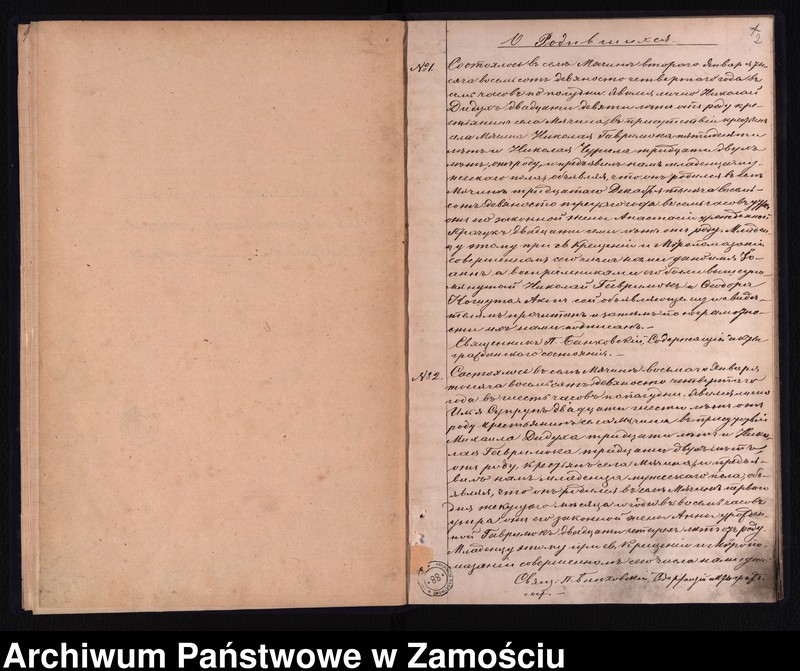 О Родившихся.
2
№1.
Состоялось въ селѣ Мячинѣ второго Января ты-
сяча восемьсотъ девяносто четвертаго года въ
семь часовъ по полудни. Явился лично Николай
Дидухъ двадцати девяти лѣтъ отъ роду кре-
стьянинъ села Мячина, въ присутствіи крестьянъ
села Мячина Николая Гаврилюка пятидесяти
лѣтъ и Николая Чурила тридцати двухъ
лѣтъ, отъ роду, и предъявилъ намъ младенца му-
жескаго пола, объявляя, что онъ родился въ селѣ
Мячинѣ тридцатаго Декабря тысяча восемь-
сотъ девяносто третьяго года въ восемь часовъ утра
отъ его законной жены Анастасіи урожденной
Ткачукъ двадцати семи лѣтъ отъ роду. Младен-
цу этому при св. Крещеніи и Мѵропомазаніи
совершенномъ сего числа нами дано имя Іо-
аннъ, а воспріемниками его были вышеупо-
мянутый Николай Гаврилюкъ и Ѳеодора
Актъ сей объявляющему и свидѣ-
телямъ прочитанъ и затѣмъ по неграмотно-
сти ихъ нами подписанъ. —
Священникъ П. Банковскій, Содержащій акты
гражданскаго состоянія. —
№2.
Состоялось въ селѣ Мячинѣ восьмаго Января
тысяча восемьсотъ девяносто четвертаго
года въ шесть часовъ пополудни. Явился лично
Супрунъ двадцати шести лѣтъ отъ
роду крестьянинъ села Мячина въ присутствіи
Михаила Дидуха тридцати лѣтъ и Нико-
лая Гаврилюка тридцати двухъ лѣтъ
отъ роду, крестьянъ села Мячина, и предъя-
вилъ намъ младенца мужескаго пола, объ-
являя, что онъ родился въ селѣ Мячинѣ перваго
дня текущаго мѣсяца и года въ восемь часовъ
утра, отъ его законной жены Анны урожден-
ной Гаврилюкъ двадцати четырехъ лѣтъ отъ роду.
Младенцу этому при св. Крещеніи и Мѵропо-
мазаніи совершенномъ сего числа нами
Свящ: П. Банковскій, Содержащій акты гражд.
сост. —
88
Archiwum Państwowe w Zamościu